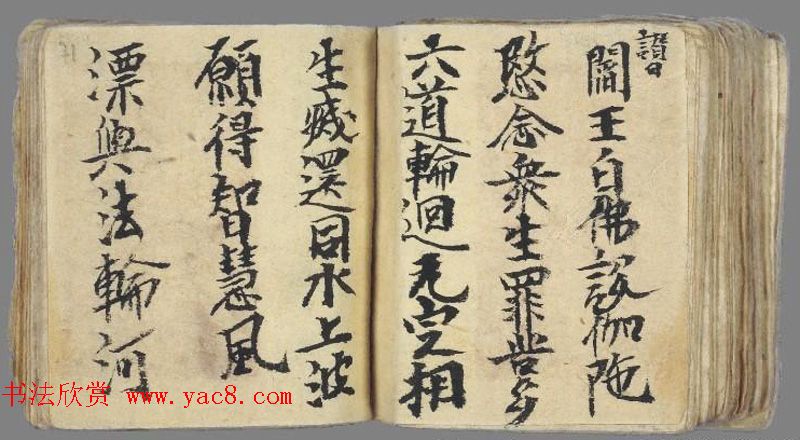 讚曰
閻王白佛說伽陁
愍念衆生罪苦多
六道輪迴无定相
生滅還同水上波
願得智慧風
漂與法輪河
书法欣赏 www.yac8.com